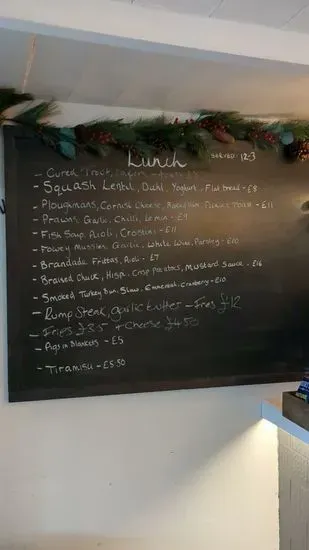 Lunch
SERVED: 12-3
- Cured Trout, Capers
- Squash, Lentil, Dahl, Yoghurt, Flat bread - £8
- Ploughmans, Cornish Cheese, Pickles, Toast - £11
- Prawns, Garlic, Chilli, Lemon - £9
- Fish Soup, Aioli, Crostini - £11
- Fowey Mussels, Garlic, White Wine, Parsley - £10
- Brandade Frittas, Aioli - £7
- Braised Chuck, Hispi, Crisp Potatoes, Mustard Sauce - £16
- Smoked Turkey Bun, Slaw, Emmental, Cranberry - £10
- Rump Steak, garlic butter - Fries £12
- Fries £3.5 + Cheese £4.50
- Pigs in Blankets - £5
- Tiramisu - £5.50